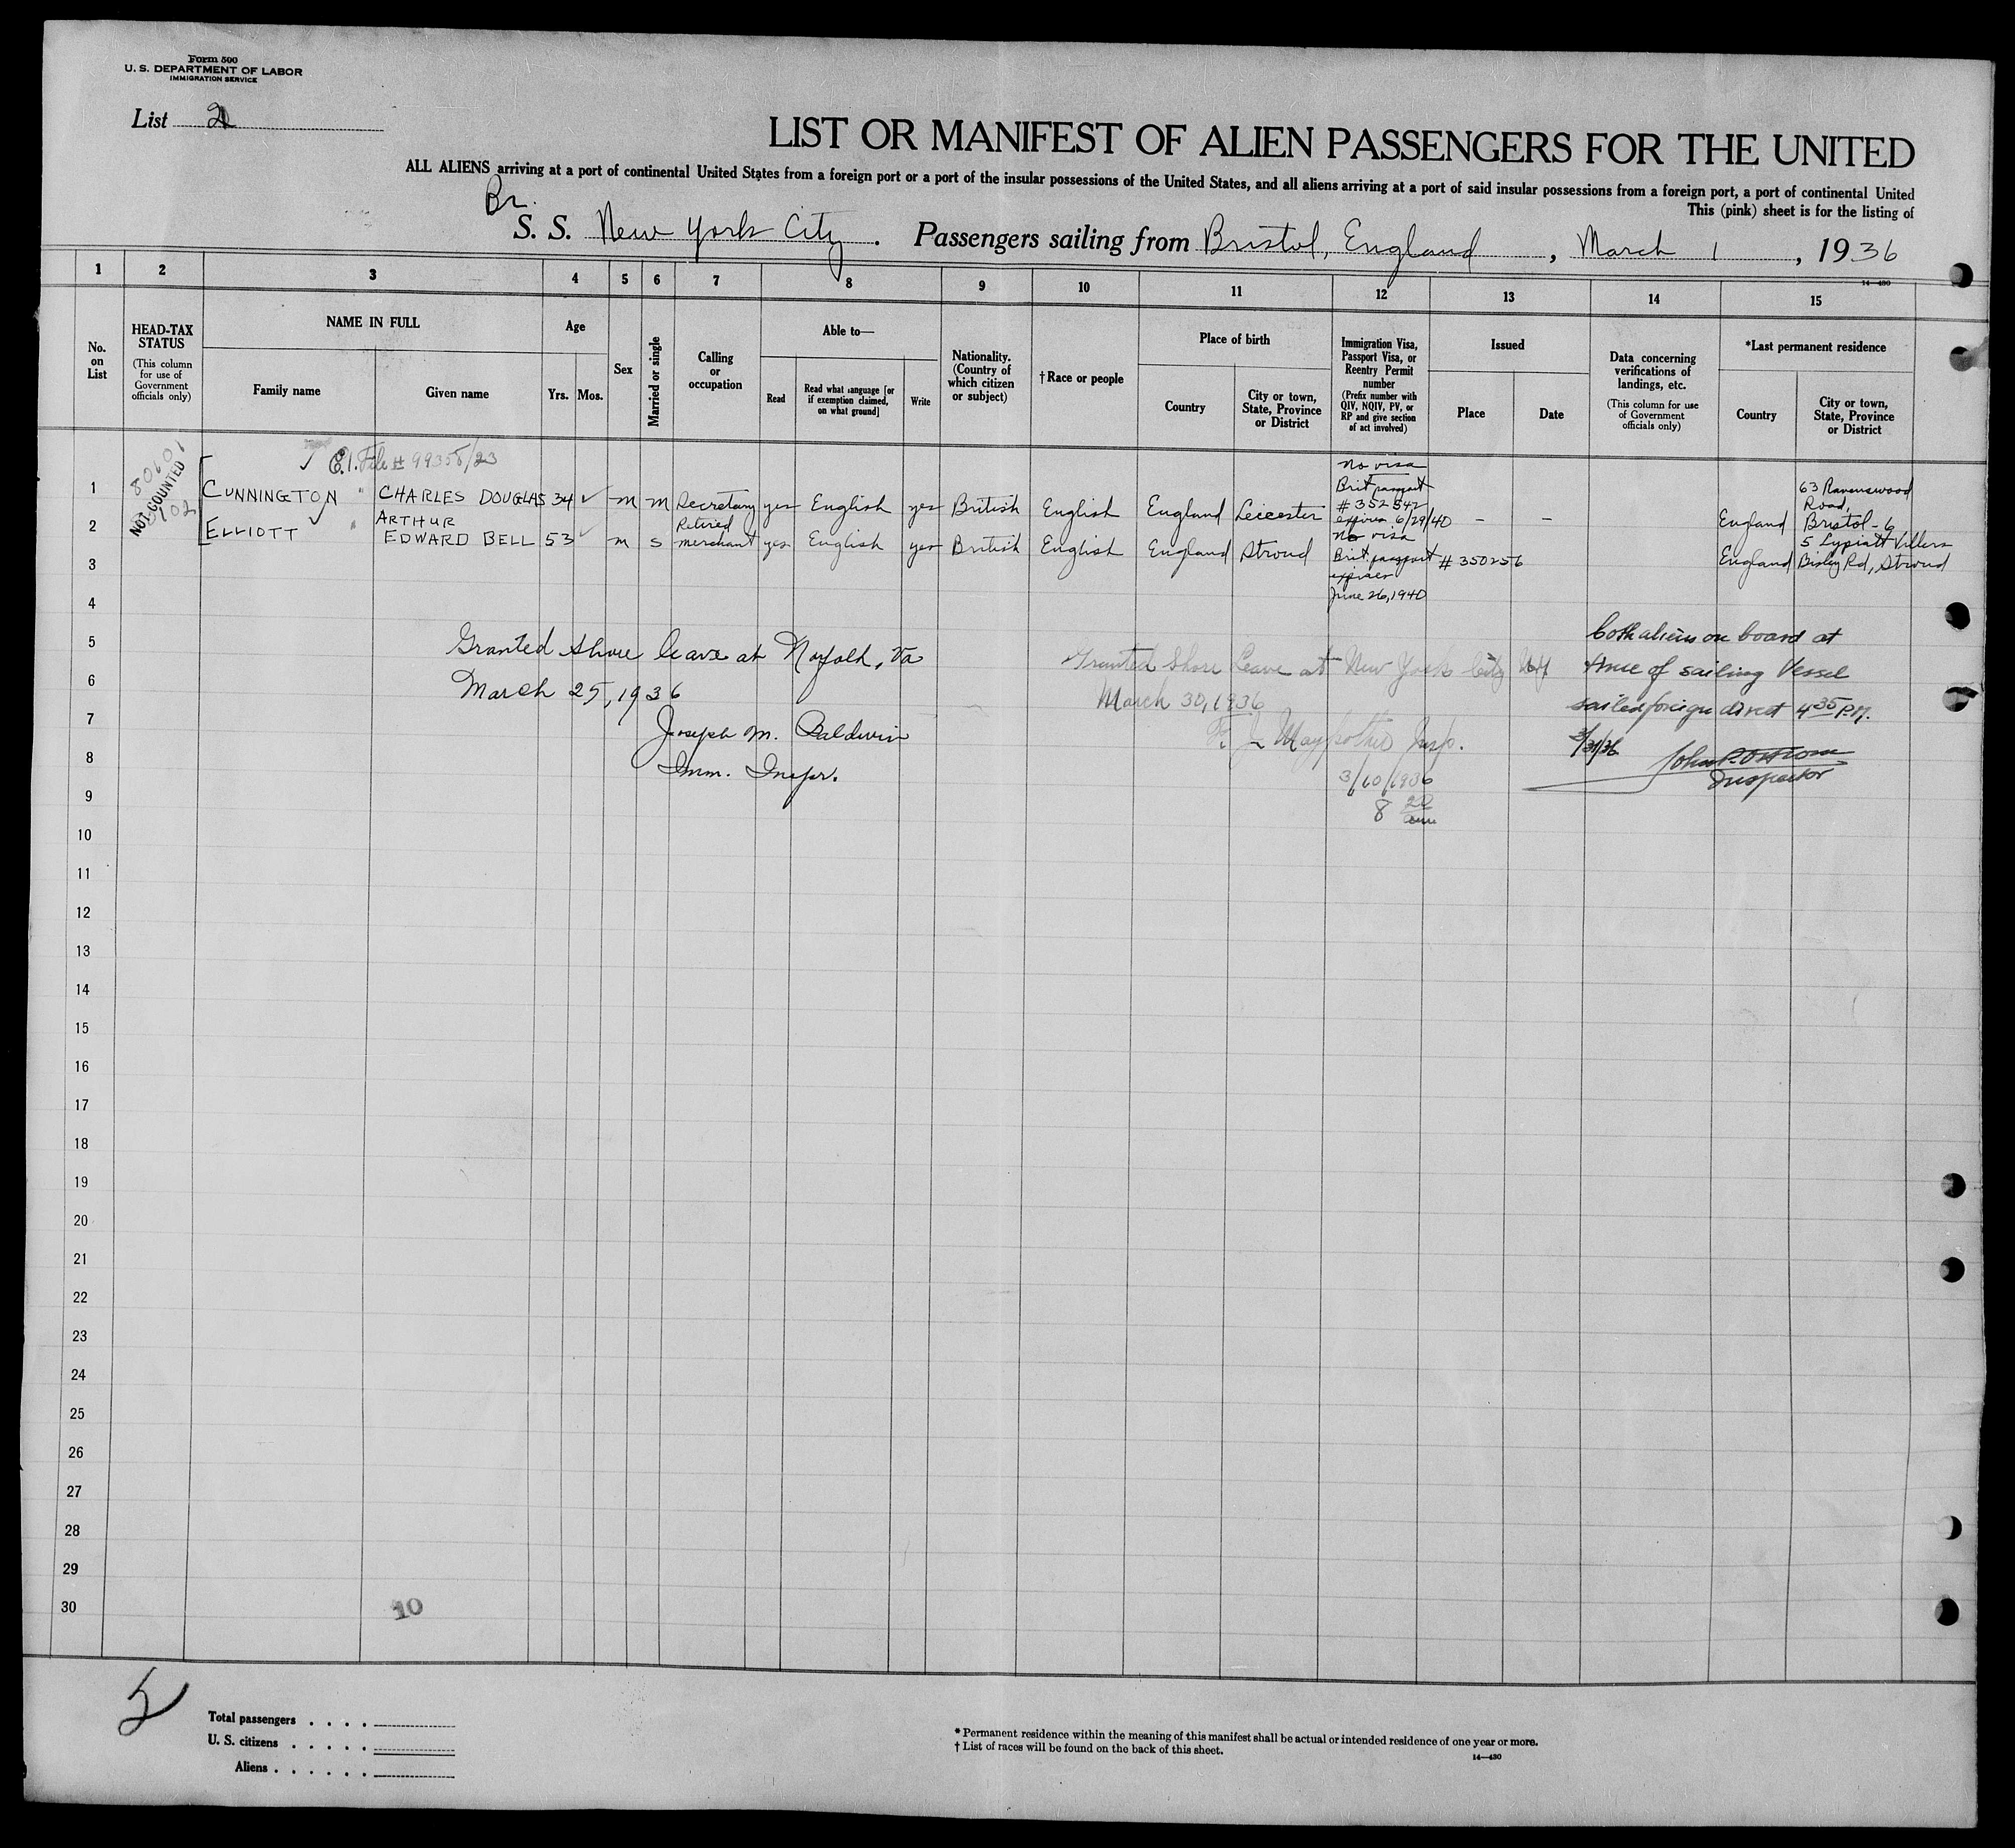 Form 500
U. S. DEPARTMENT OF LABOR
IMMIGRATION SERVICE
List 2
LIST OR MANIFEST OF ALIEN PASSENGERS FOR THE UNITED
ALL ALIENS arriving at a port of continental United States from a foreign port or a port of the insular possessions of the United States, and all aliens arriving at a port of said insular possessions from a foreign port, a port of continental United
This (pink) sheet is for the listing of
Br.
S. S. New York City. Passengers sailing from Bristol, England, March 1, 1936
14—430
1 2 3 4 5 6 7 8 9 10 11 12 13 14 15
No. on List
HEAD-TAX STATUS
(This column for use of Government officials only)
NAME IN FULL
Family name
Given name
Age
Yrs. Mos.
Sex
Married or single
Calling or occupation
Able to—
Read
Read what language [or if exemption claimed, on what ground]
Write
Nationality. (Country of which citizen or subject)
† Race or people
Place of birth
Country
City or town, State, Province or District
Immigration Visa, Passport Visa, or Reentry Permit number
(Prefix number with QIV, NQIV, PV, or RP and give section of act involved)
Issued
Place
Date
Data concerning verifications of landings, etc.
(This column for use of Government officials only)
*Last permanent residence
Country
City or town, State, Province or District
File # 99355/23
NOT COUNTED
1 CUNNINGTON CHARLES DOUGLAS 34 m m Secretary yes English yes British English England Leicester no visa Brit passport # 352542 expires 6/29/40 - - England 63 Ravenswood Road, Bristol-6
2 ELLIOTT ARTHUR EDWARD BELL 53 m s Retired merchant yes English yes British English England Stroud no visa Brit. passport # 350256 expires June 26, 1940 England 5 Lypiatt Villers Bisley Rd, Stroud
3
4
5
6
7
8
9
10
11
12
13
14
15
16
17
18
19
20
21
22
23
24
25
26
27
28
29
30
Granted shore leave at Norfolk, Va
March 25, 1936
Joseph M. Baldwin
Imm. Inspr.
Granted Shore Leave at New York City NY
March 30, 1936
Insp.
8 20
both aliens on board at
time of sailing Vessel
sailed foreign direct 4 35 P.M.
3/31/36
Inspector
10
5
Total passengers . . . .
U. S. citizens . . . . .
Aliens . . . . . .
* Permanent residence within the meaning of this manifest shall be actual or intended residence of one year or more.
† List of races will be found on the back of this sheet.
14—430